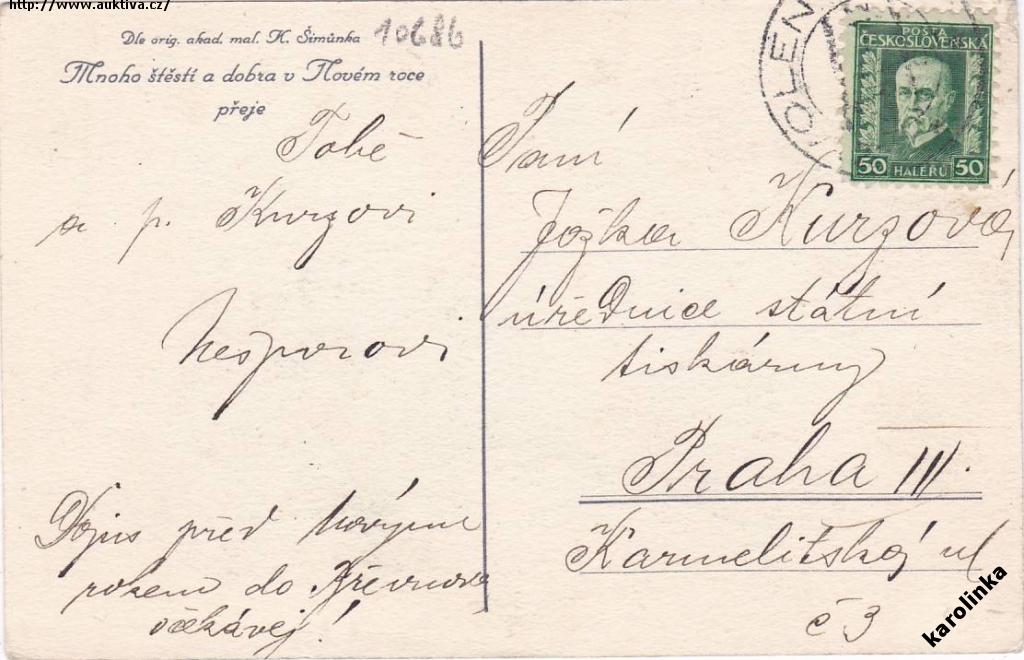 http://www.auktiva.cz/
Dle orig. akad. mal. K. Šimůnka
10686
Mnoho štěstí a dobra v Novém roce
přeje
Tobě
a p. Kurzovi
Nešporovi
Dopis před Novým
rokem do Břevnova
očekávej!
VOLEN
POŠTA
ČESKOSLOVENSKÁ
50 HALÉŘŮ 50
Paní
Jožka Kurzová
úřednice státní
tiskárny
Praha III.
Karmelitská ul
č 3
karolinka